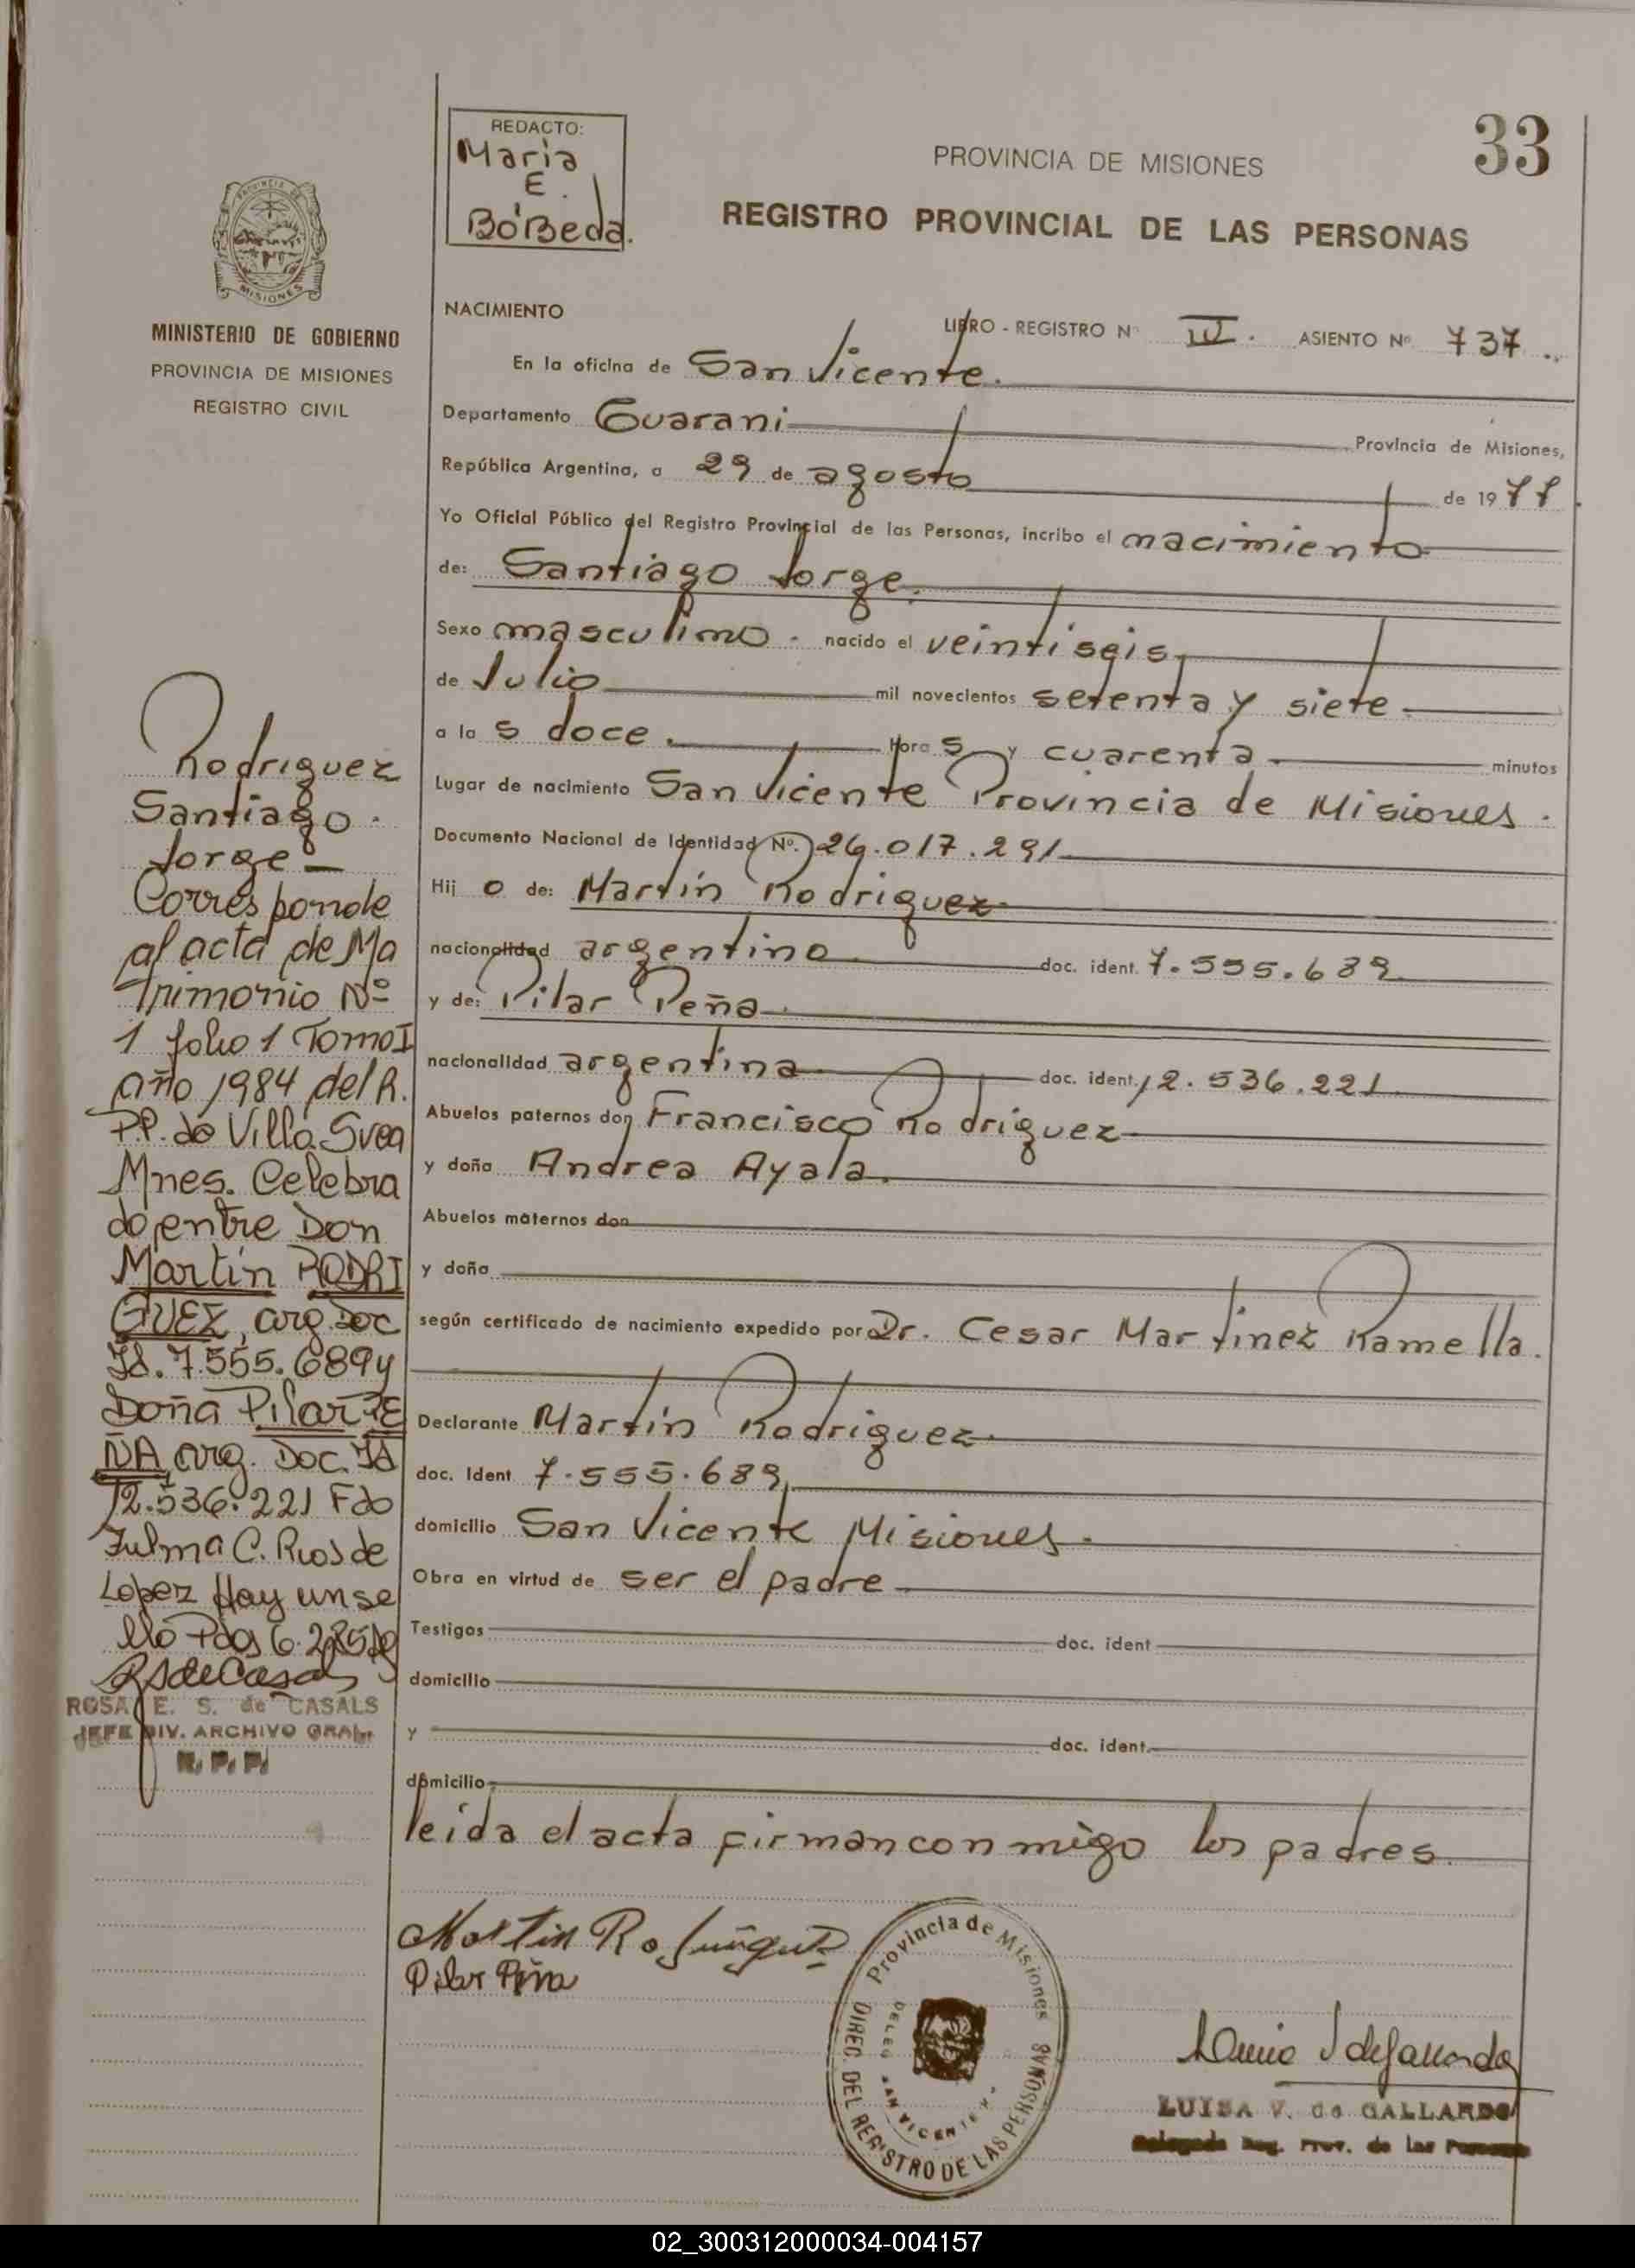 33
REDACTO:
Maria
E.
BóBeda.
PROVINCIA DE MISIONES
REGISTRO PROVINCIAL DE LAS PERSONAS
MISIONES
MINISTERIO DE GOBIERNO
PROVINCIA DE MISIONES
REGISTRO CIVIL
NACIMIENTO
LIBRO - REGISTRO Nº III. ASIENTO Nº 737.
En la oficina de San Vicente.
Departamento Guarani Provincia de Misiones,
República Argentina, a 29 de agosto de 1977.
Yo Oficial Público del Registro Provincial de las Personas, incribo el nacimiento
de: Santiago Jorge.
Sexo masculino. nacido el veintiseis
de Julio mil novecientos setenta y siete.
a la s doce. hora s y cuarenta. minutos
Lugar de nacimiento San Vicente Provincia de Misiones.
Documento Nacional de Identidad (Nº.) 26.017.291
Hij o de: Martín Rodriguez
nacionalidad argentino doc. ident. 7.555.689
y de: Pilar Peña
nacionalidad argentina doc. ident. 12.536.221
Abuelos paternos don Francisco Rodriguez
y doña Andrea Ayala.
Abuelos maternos don
y doña
según certificado de nacimiento expedido por Dr. Cesar Martinez Ramella.
Declarante Martín Rodriguez
doc. Ident 7.555.689
domicilio San Vicente Misiones.
Obra en virtud de ser el padre
Testigos doc. ident
domicilio
y doc. ident.
domicilio
leida el acta firman conmigo los padres.
Martin Rodriguez
Pilar Peña
Provincia de Misiones
DIREC. DEL REGISTRO DE LAS PERSONAS
DELEG. SAN VICENTE
LUISA V. de GALLARDO
Delegada Reg. Prov. de las Personas
Rodriguez
Santiago.
Jorge—
Corresponde
al acta de Ma
trimonio Nº
1 folio 1 Tomo I
año 1984 del R.
P.P. de Villa Svea
Mnes. Celebra
do entre Don
Martín RODRI
GUEZ, arg. Doc
Id. 7.555.689 y
Doña Pilar PE
ÑA arg. Doc. Id
12.536.221 Fdo
Zulma C. Rios de
Lopez Hay un se
llo Pdas 6.
ROSA E. S. de CASALS
JEFE DIV. ARCHIVO GRAL.
R. P. P.
02_300312000034-004157